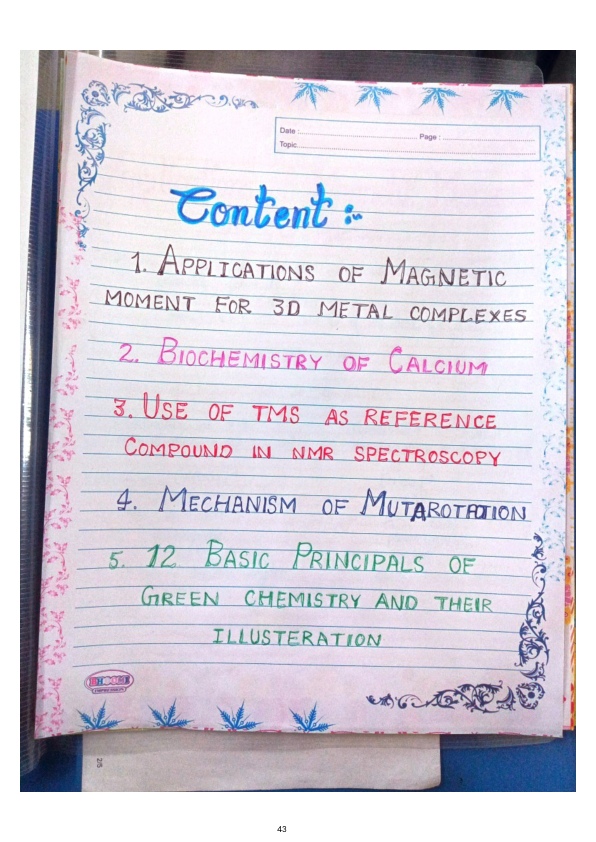 Date : Page :
Topic
Content :-
1. APPLICATIONS OF MAGNETIC
MOMENT FOR 3D METAL COMPLEXES
2. BIOCHEMISTRY OF CALCIUM
3. USE OF TMS AS REFERENCE
COMPOUND IN NMR SPECTROSCOPY
4. MECHANISM OF MUTAROTATION
5. 12 BASIC PRINCIPALS OF
GREEN CHEMISTRY AND THEIR
ILLUSTERATION
43